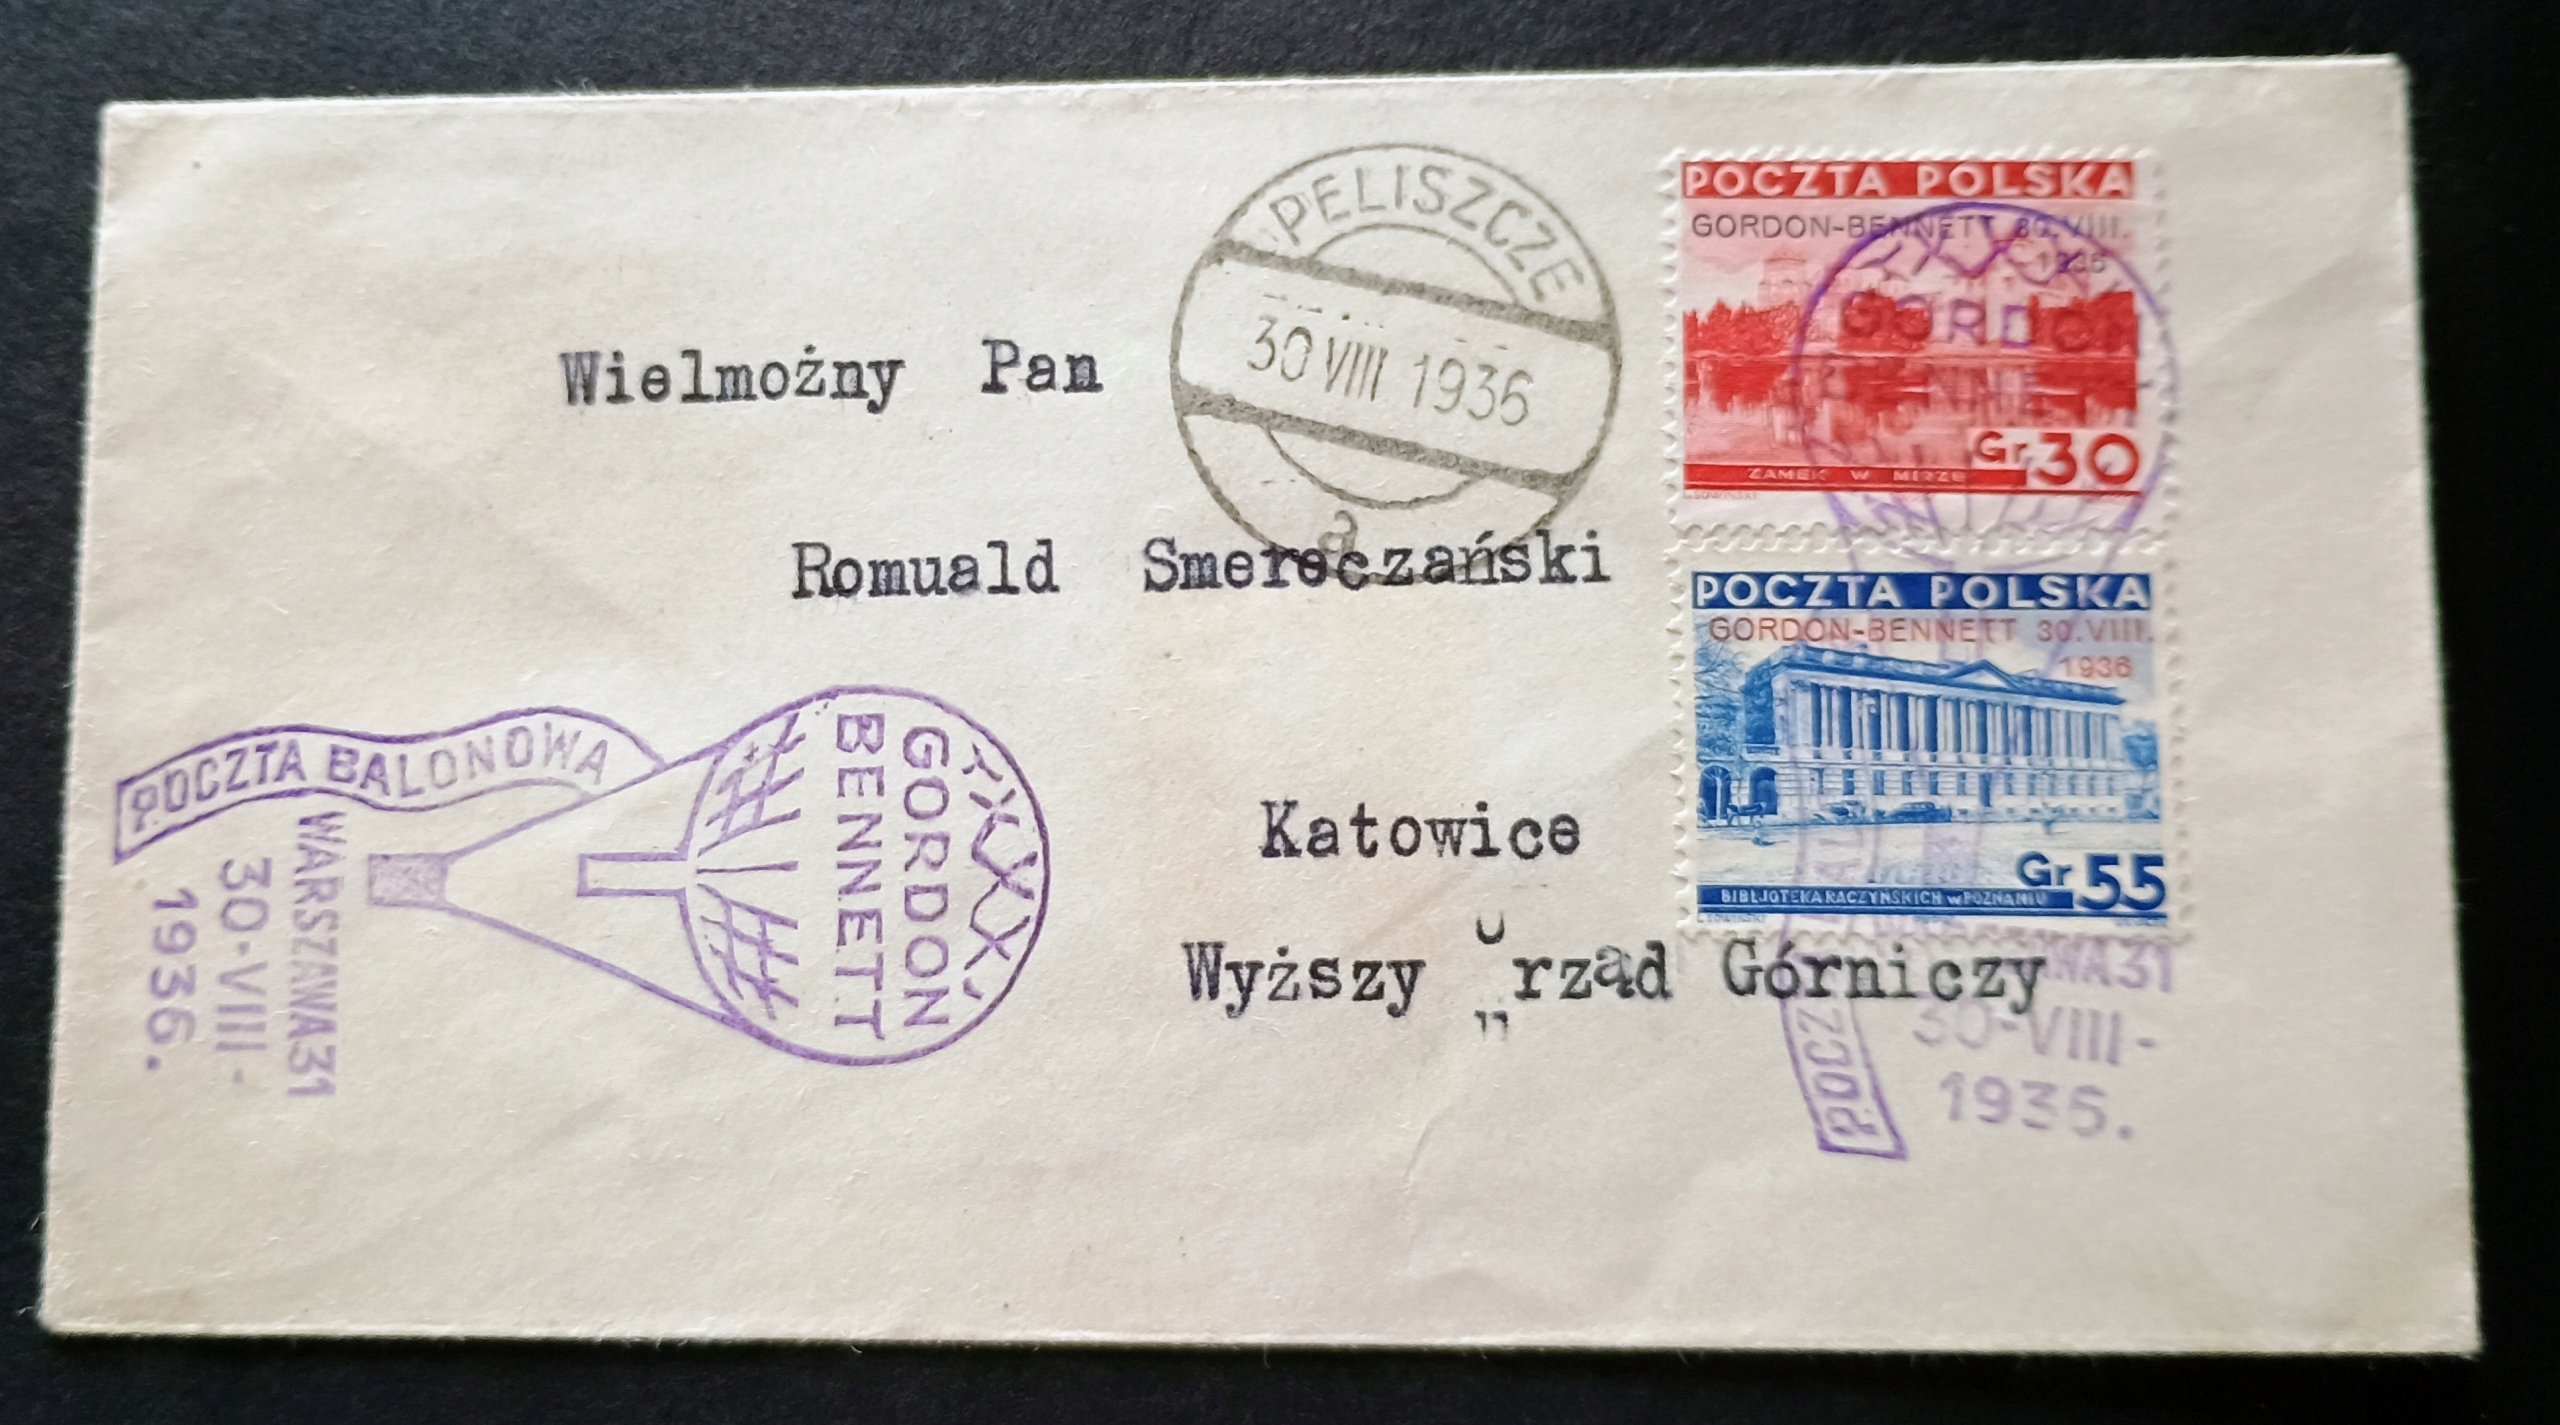 PELISZCZE
30 VIII 1936
a
Wielmożny Pan
Romuald Smereczański
Katowice
Wyższy Urząd Górniczy
POCZTA POLSKA
GORDON-BENNETT 30.VIII.
1936
Gr. 30
ZAMEK W MIRZE
POCZTA POLSKA
GORDON-BENNETT 30.VIII.
1936
Gr 55
BIBLJOTEKA RACZYŃSKICH w POZNANIU
XXIV.
GORDON
BENNETT
POCZTA BALONOWA
WARSZAWA 31
30-VIII-
1936.
GORDON
30-VIII-
1936.